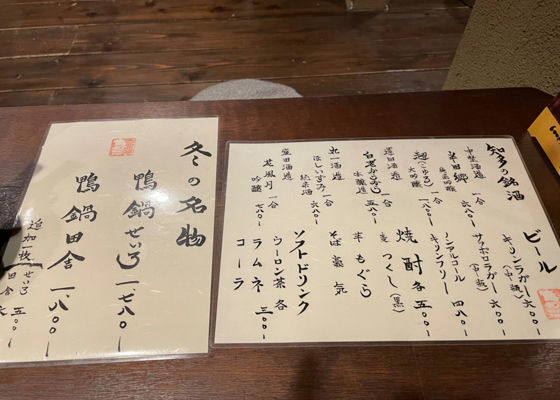 知多の銘酒
中埜酒造 一合
半田郷 純米吟醸 六八〇-
大吟醸
澤田酒造 一合
白老からくち 本醸造 五八〇-
ほしいずみ 一合
純米酒 六八〇-
花風月 一合
吟醸 七八〇-
ビール
キリンラガー(中瓶) 六〇〇-
サッポロラガー(中瓶) 六〇〇-
ノンアルコール 四八〇-
キリンフリー
焼酎 各五〇〇-
麦 つくし(黒)
芋 もぐら
そば
ソフトドリンク
ウーロン茶 各
ラムネ 三〇〇-
コーラ
冬の名物
鴨鍋せいろ 一七八〇-
鴨鍋田舎 一八〇〇-
追加一枚 せいろ 五〇〇-
田舎